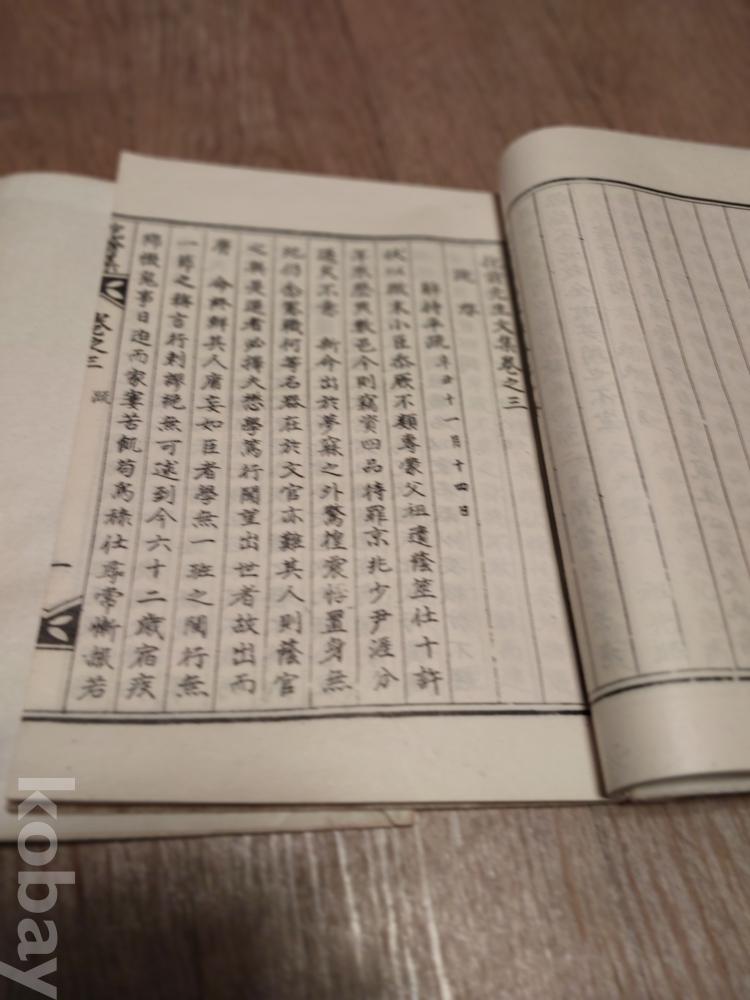 先生文集卷之三
疏
辭持平疏 辛丑十一月十四日
伏以微末小臣忝厥不類專蒙父祖遺蔭筮仕十許
年來歷典數邑今則竊資四品待罪京兆少尹涯分
逃不意 新命出於夢寐之外驚惶震悟置身無
地仍念憲職何等名器在於文官亦難其人則蔭官
之與是選者必擇大懋學篤行聞望出世者故出而
膺 命終鮮其人庸妄如臣者學無一班之聞行無
一節之稱言行刺謬絶無可述到今六十二歲宿疾
冤事日迫而家寠苦飢苟爲祿仕尋常慚若
卷之三
疏
一
kobay